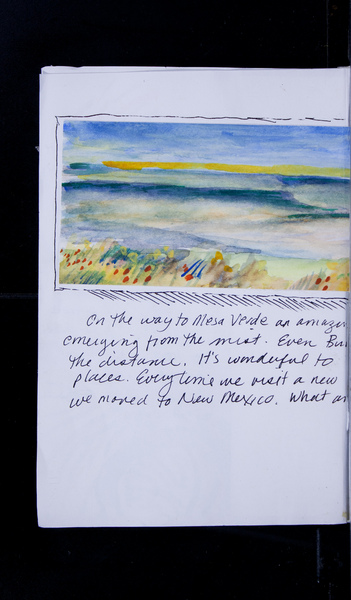 On the way to Mesa Verde an
emerging from the mist. Even
the distance. It's wonderful to
places. Everytime we visit a new
we moved to New Mexico. What